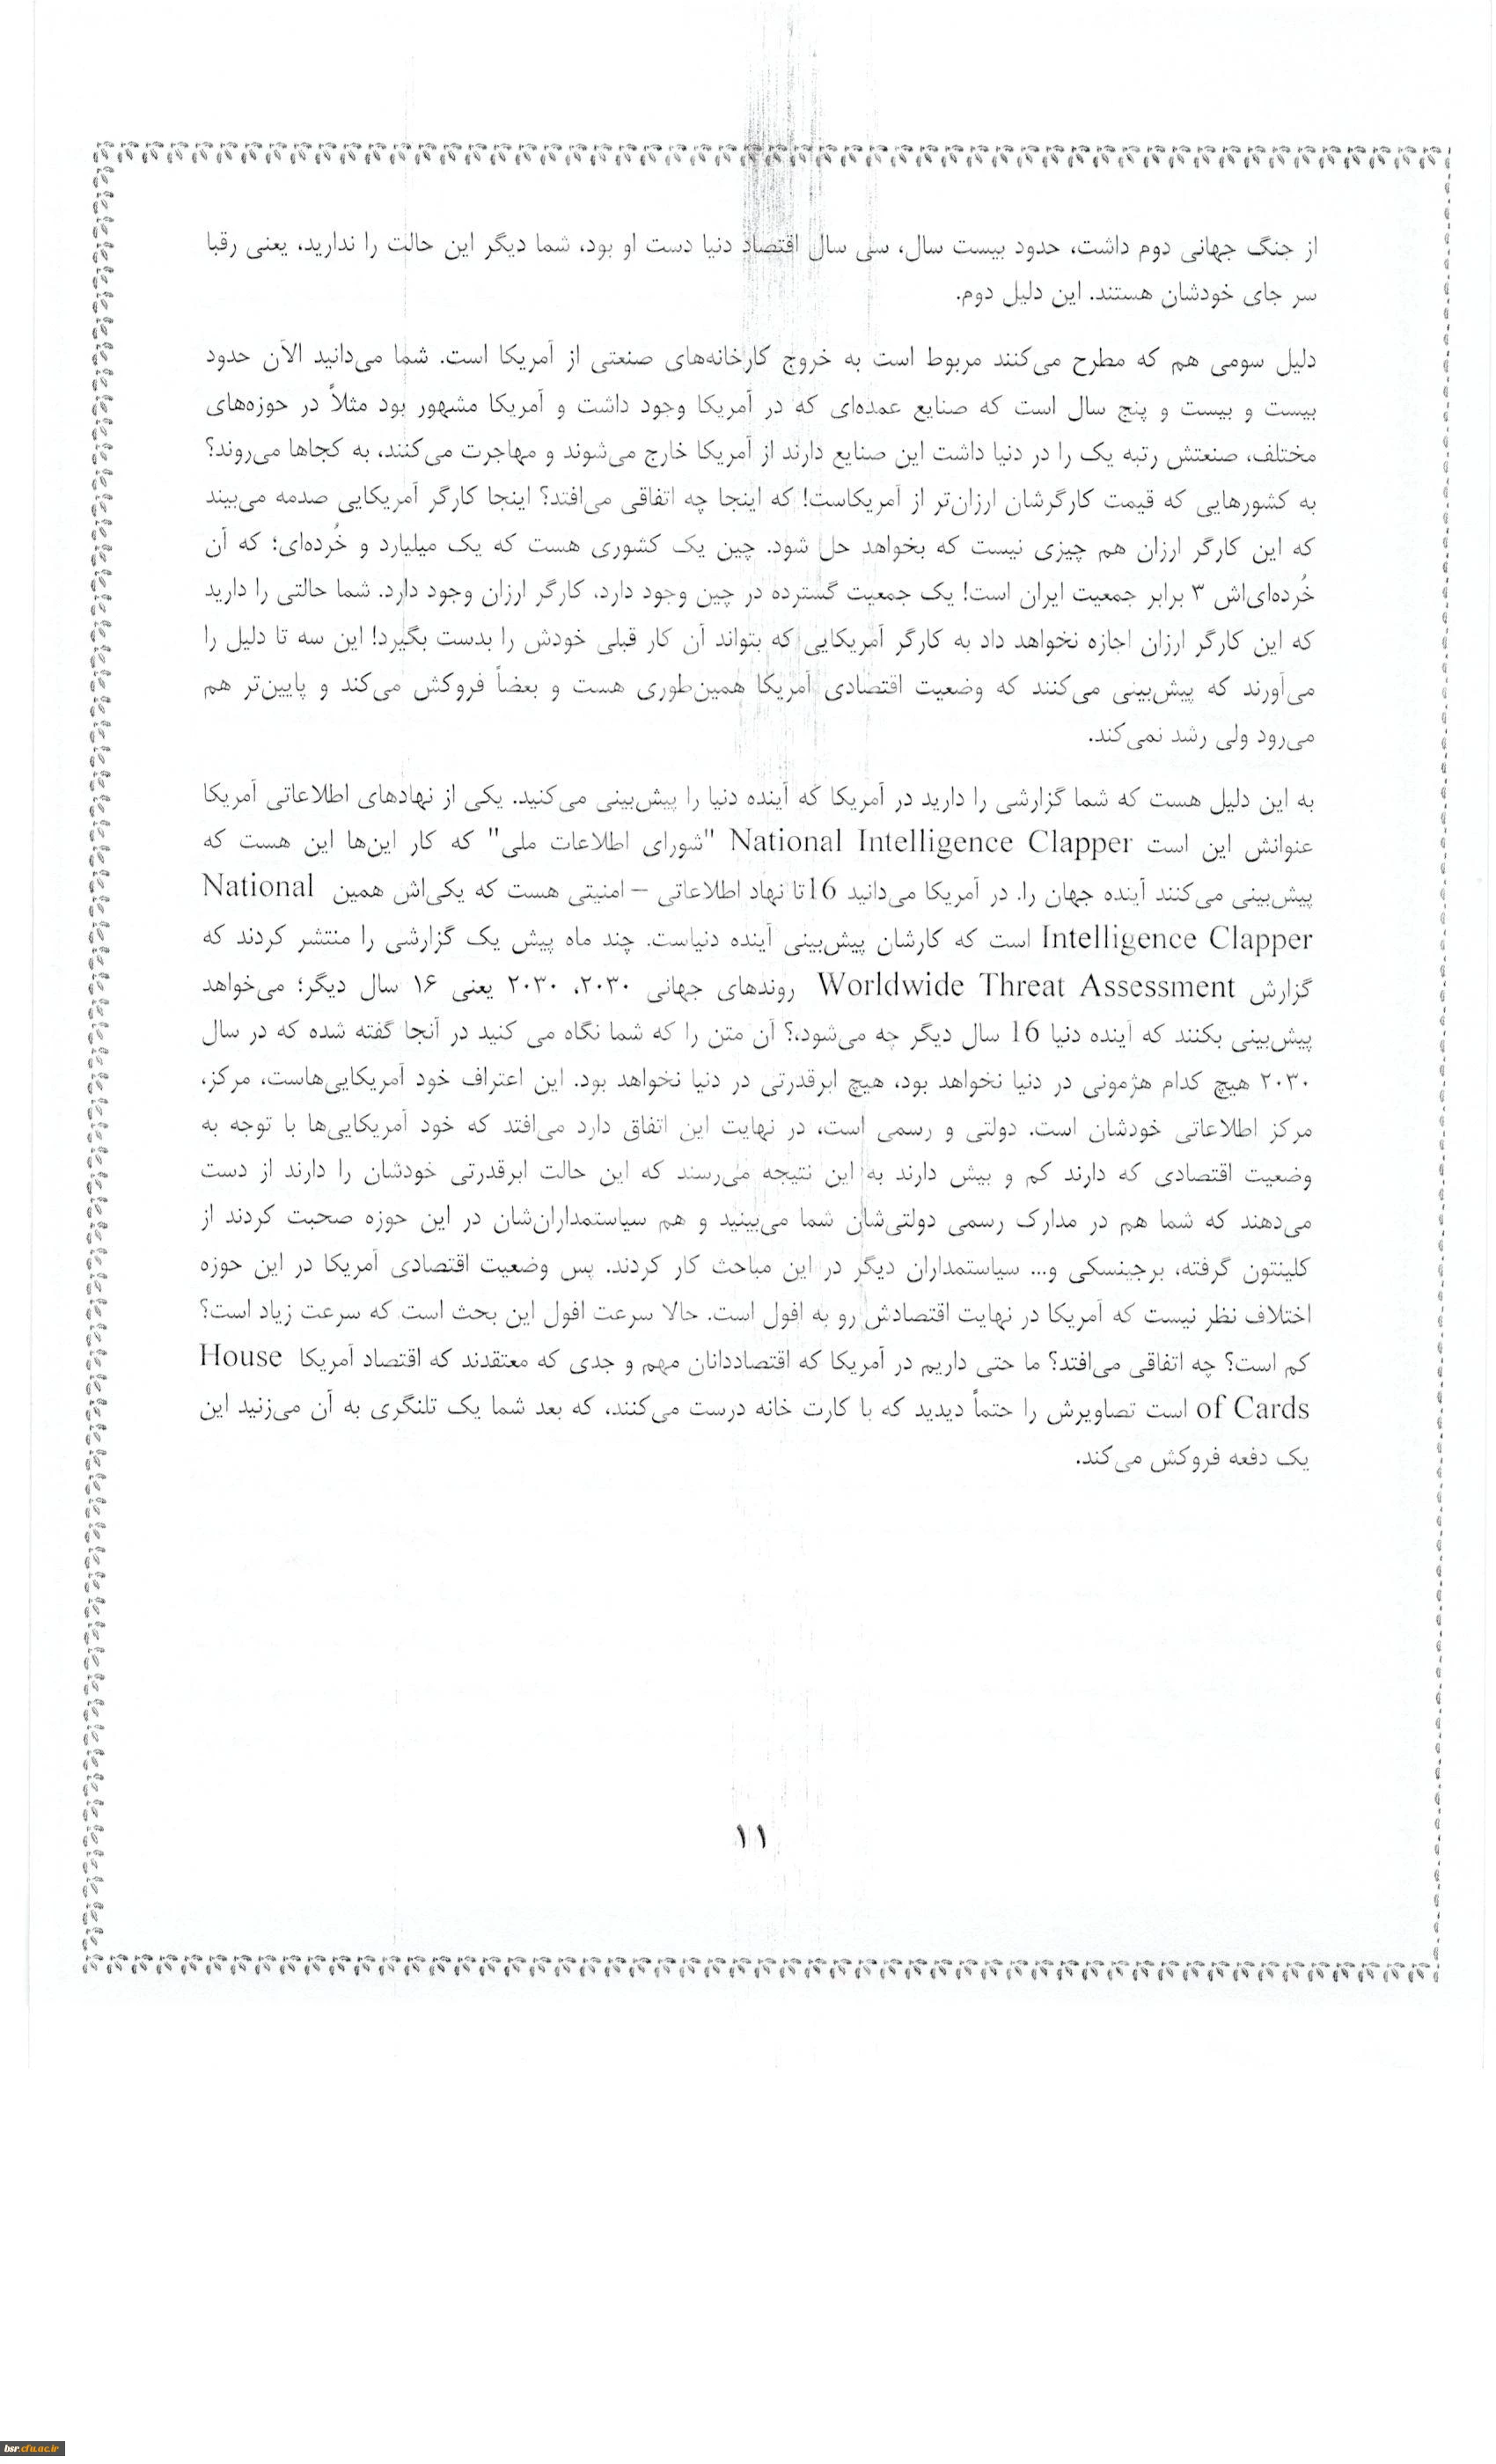 از جنگ جهانی دوم داشت، حدود بیست سال، سی سال اقتصاد دنیا دست او بود، شما دیگر این حالت را ندارید، یعنی رقبا
سر جای خودشان هستند. این دلیل دوم.
دلیل سومی هم که مطرح می‌کنند مربوط است به خروج کارخانه‌های صنعتی از آمریکا است. شما می‌دانید الآن حدود
بیست و بیست و پنج سال است که صنایع عمده‌ای که در آمریکا وجود داشت و آمریکا مشهور بود مثلاً در حوزه‌های
مختلف، صنعتش رتبه یک را در دنیا داشت این صنایع دارند از آمریکا خارج می‌شوند و مهاجرت می‌کنند، به کجاها می‌روند؟
به کشورهایی که قیمت کارگرشان ارزان‌تر از آمریکاست! که اینجا چه اتفاقی می‌افتد؟ اینجا کارگر آمریکایی صدمه می‌بیند
که این کارگر ارزان هم چیزی نیست که بخواهد حل شود. چین یک کشوری هست که یک میلیارد و خُرده‌ای؛ که آن
خُرده‌ای‌اش ۳ برابر جمعیت ایران است! یک جمعیت گسترده در چین وجود دارد، کارگر ارزان وجود دارد. شما حالتی را دارید
که این کارگر ارزان اجازه نخواهد داد به کارگر آمریکایی که بتواند آن کار قبلی خودش را بدست بگیرد! این سه تا دلیل را
می‌آورند که پیش‌بینی می‌کنند که وضعیت اقتصادی آمریکا همین‌طوری هست و بعضاً فروکش می‌کند و پایین‌تر هم
می‌رود ولی رشد نمی‌کند.
به این دلیل هست که شما گزارشی را دارید در آمریکا که آینده دنیا را پیش‌بینی می‌کنید. یکی از نهادهای اطلاعاتی آمریکا
عنوانش این است National Intelligence Clapper "شورای اطلاعات ملی" که کار این‌ها این هست که
پیش‌بینی می‌کنند آینده جهان را. در آمریکا می‌دانید 16تا نهاد اطلاعاتی – امنیتی هست که یکی‌اش همین National
Intelligence Clapper است که کارشان پیش‌بینی آینده دنیاست. چند ماه پیش یک گزارشی را منتشر کردند که
گزارش Worldwide Threat Assessment روندهای جهانی ۲۰۳۰، ۲۰۳۰ یعنی ۱۶ سال دیگر؛ می‌خواهد
پیش‌بینی بکنند که آینده دنیا 16 سال دیگر چه می‌شود،؟ آن متن را که شما نگاه می کنید در آنجا گفته شده که در سال
۲۰۳۰ هیچ کدام هژمونی در دنیا نخواهد بود، هیچ ابرقدرتی در دنیا نخواهد بود. این اعتراف خود آمریکایی‌هاست، مرکز،
مرکز اطلاعاتی خودشان است. دولتی و رسمی است، در نهایت این اتفاق دارد می‌افتد که خود آمریکایی‌ها با توجه به
وضعیت اقتصادی که دارند کم و بیش دارند به این نتیجه می‌رسند که این حالت ابرقدرتی خودشان را دارند از دست
می‌دهند که شما هم در مدارک رسمی دولتی‌شان شما می‌بینید و هم سیاستمداران‌شان در این حوزه صحبت کردند از
کلینتون گرفته، برجینسکی و... سیاستمداران دیگر در این مباحث کار کردند. پس وضعیت اقتصادی آمریکا در این حوزه
اختلاف نظر نیست که آمریکا در نهایت اقتصادش رو به افول است. حالا سرعت افول این بحث است که سرعت زیاد است؟
کم است؟ چه اتفاقی می‌افتد؟ ما حتی داریم در آمریکا که اقتصاددانان مهم و جدی که معتقدند که اقتصاد آمریکا House
of Cards است تصاویرش را حتماً دیدید که با کارت خانه درست می‌کنند، که بعد شما یک تلنگری به آن می‌زنید این
یک دفعه فروکش می‌کند.
۱۱
bsr.cfu.ac.ir